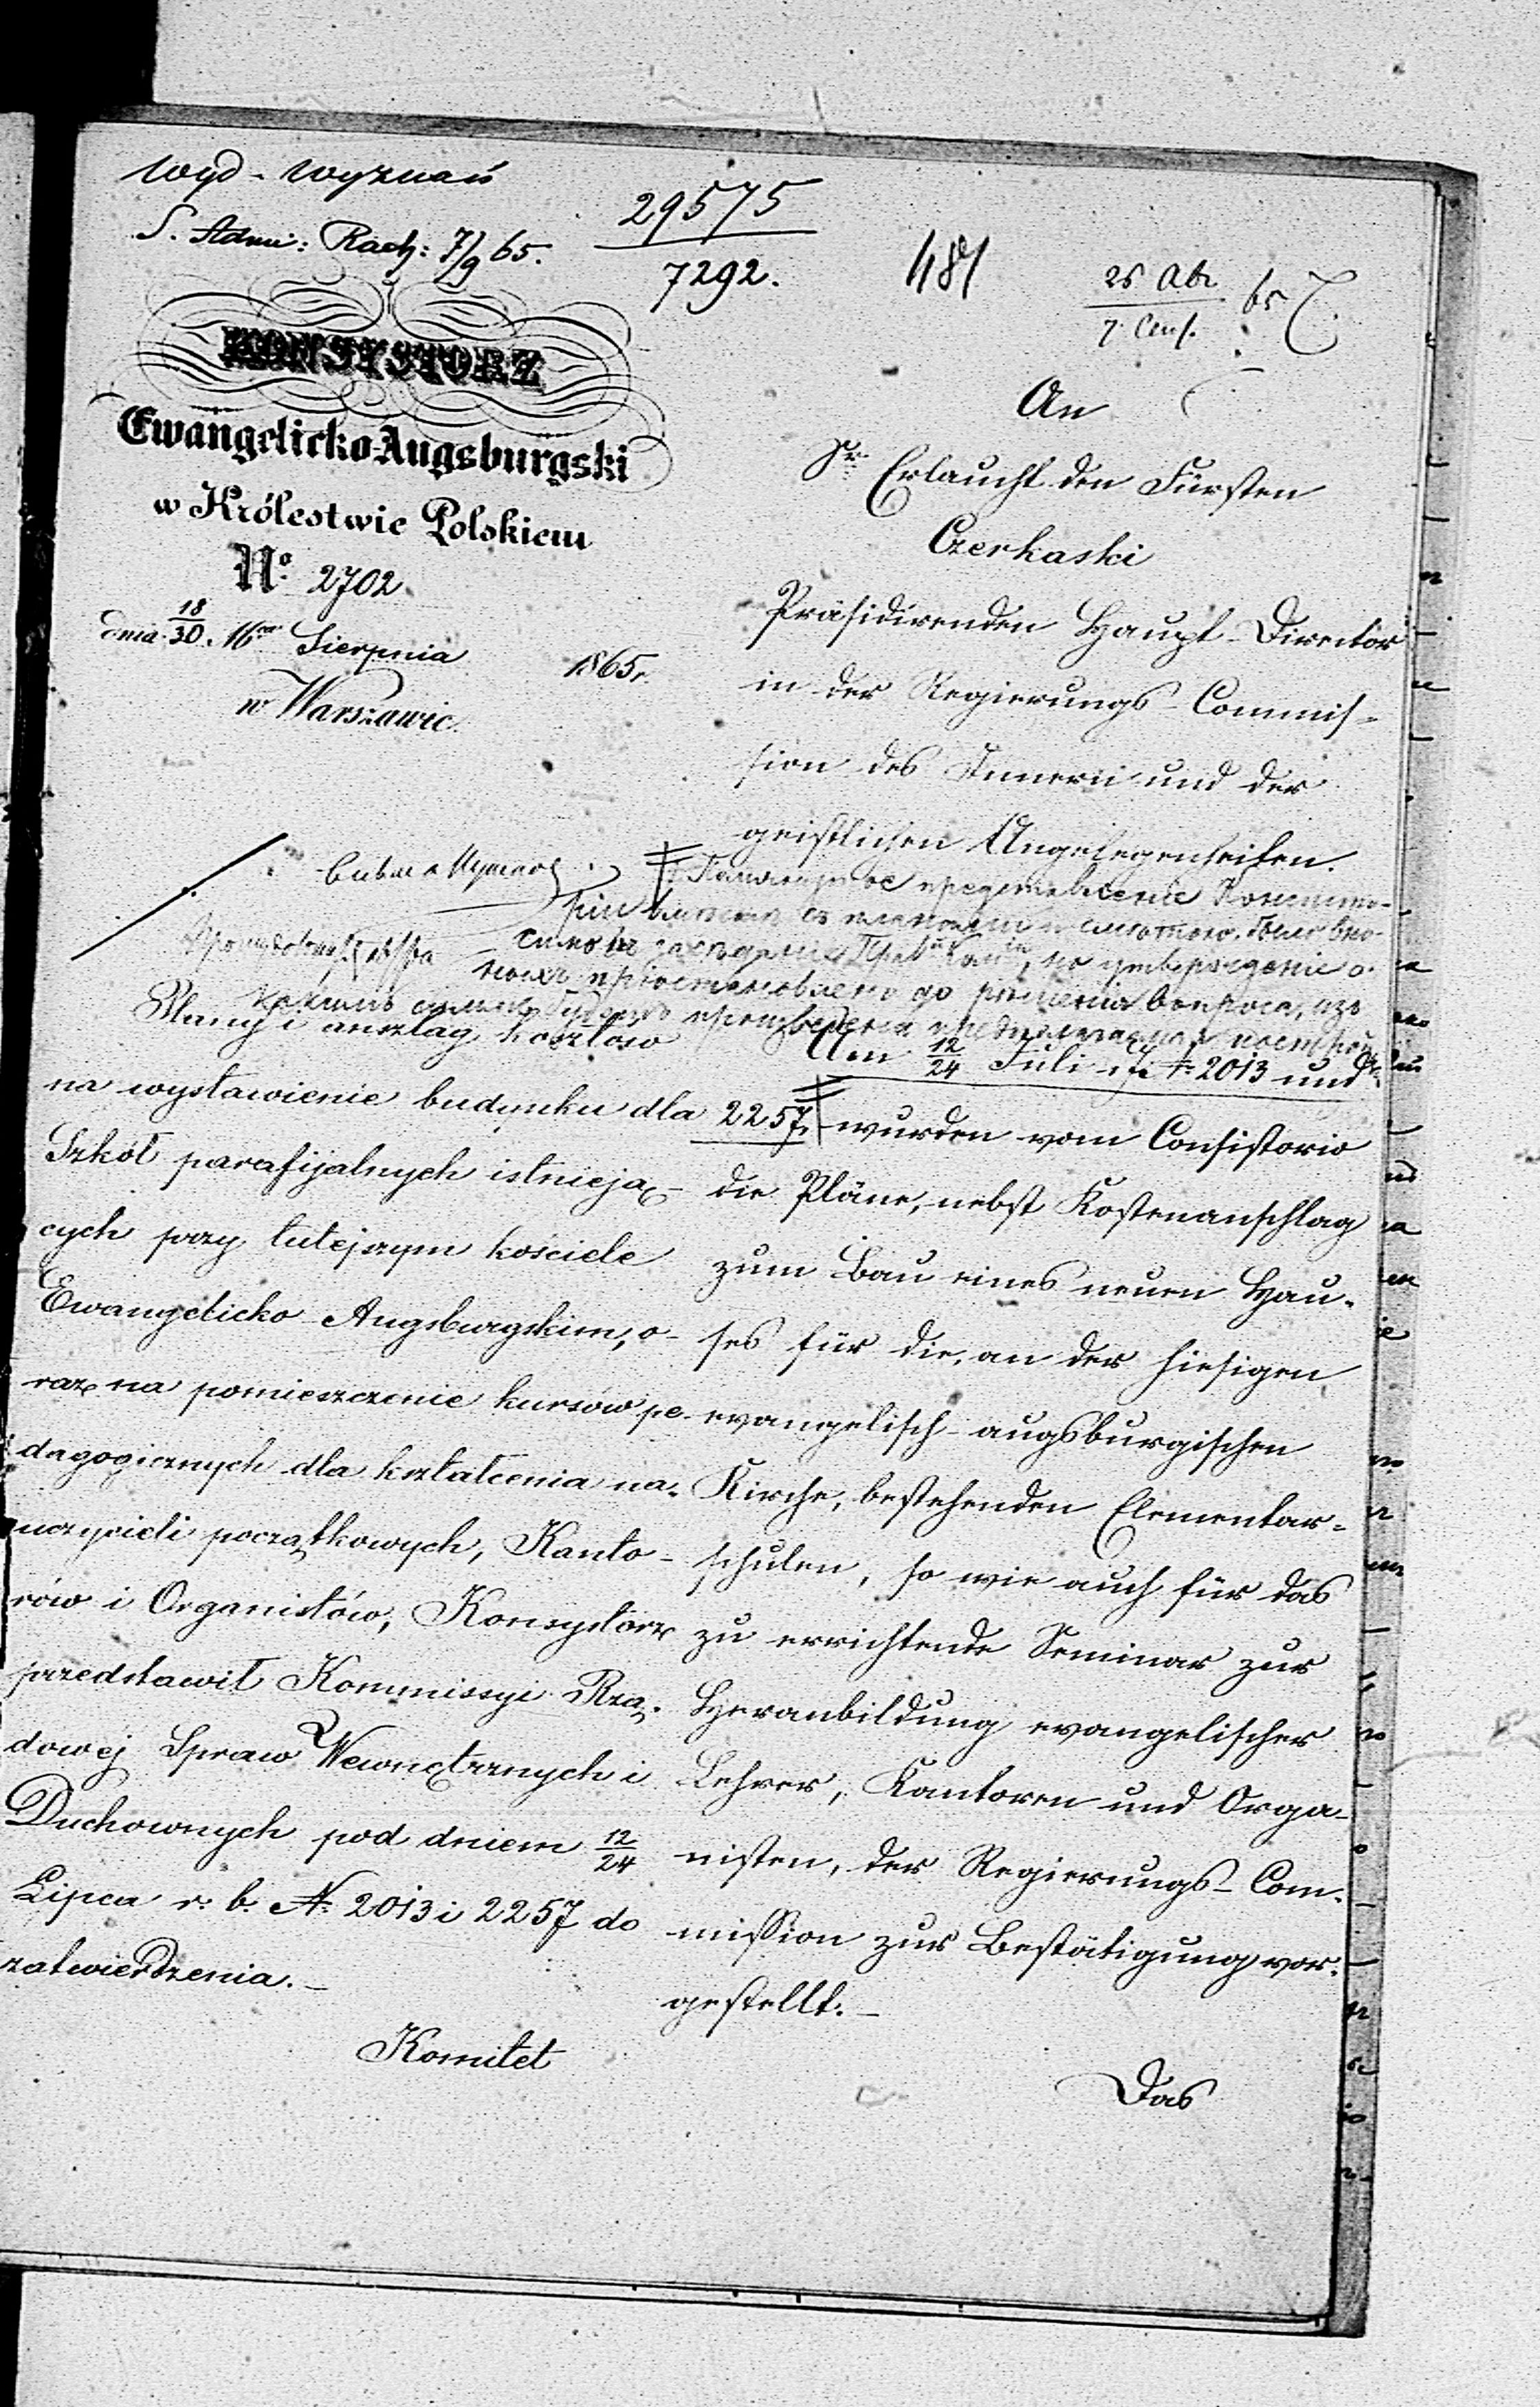 Wyd - Wyznań
S. Adm: Rach: 7/9 65.
29575
7292.
25
7
65
KONSYSTORZ
Ewangelicko-Augsburgski
w Królestwie Polskiem
No. 2702
dnia 18/30. Sierpnia 1865 r.
w Warszawie
An
Sr. Erlaucht den Fürsten
Czerkaski
Präsidirenden Haupt-Director
in der Regierungs-Commis-
sion des Innern und der
geistlichen Angelegenheiten.
представление Консисто-
рии
утверждение о-
до решения вопроса, изъ
Plany i anszlag kosztów
na wystawienie budynku dla
Szkół parafijalnych istnieją-
cych przy tutejszym kościele
Ewangelicko-Augsburgskim, o-
raz na pomieszczenie kursów pe-
dagogicznych dla kształcenia na-
uczycieli początkowych, Kanto-
rów i Organistów, Konsystorz
przedstawił Kommissyi Rzą-
dowej Spraw Wewnętrznych i
Duchownych pod dniem 12/24
Lipca r. b. No 2013 i 2257 do
zatwierdzenia.-
Komitet
Am 12/24 Juli No 2013 und
2257, wurden vom Consistorio
die Pläne, nebst Kostenanschlag
zum Bau eines neuen Hau-
ses für die, an der hiesigen
evangelisch-augsburgischen
Kirche, bestehenden Elementar-
schulen, so wie auch für das
zu errichtende Seminar zur
Heranbildung evangelischer
Lehrer, Kantoren und Orga-
nisten, der Regierungs-Com-
mission zur Bestätigung vor-
gestellt.-
Das